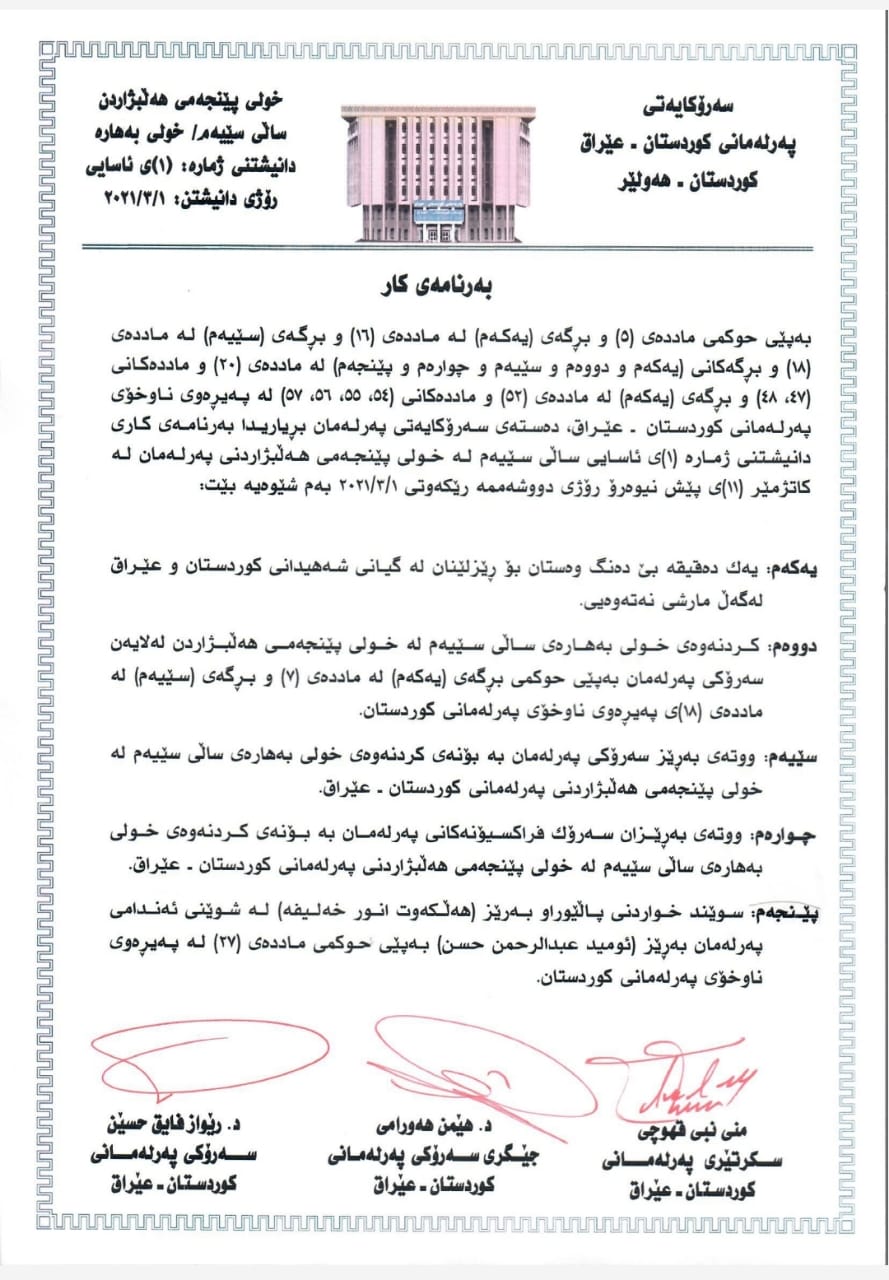 سەرۆکایەتی
پەرلەمانی کوردستان ـ عێراق
کوردستان ـ هەولێر
خولی پێنجەمی هەڵبژاردن
ساڵی سێیەم/ خولی بەهارە
دانیشتنی ژمارە: (١)ی ئاسایی
رۆژی دانیشتن: ٢٠٢١/٣/١
بەرنامەی کار
بەپێی حوکمی ماددەی (٥) و برگەی (یەکەم) لە ماددەی (١٦) و برگەی (سێیەم) لە ماددەی
(١٨) و برگەکانی (یەکەم و دووەم و سێیەم و چوارەم و پێنجەم) لە ماددەی (٢٠) و ماددەکانی
(٤٧، ٤٨) و برگەی (یەکەم) لە ماددەی (٥٢) و ماددەکانی (٥٤، ٥٥، ٥٦، ٥٧) لە پەیرەوی ناوخۆی
پەرلەمانی کوردستان ـ عێراق، دەستەی سەرۆکایەتی پەرلەمان بریاریدا بەرنامەی کاری
دانیشتنی ژمارە (١)ی ئاسایی ساڵی سێیەم لە خولی پێنجەمی هەڵبژاردنی پەرلەمان لە
کاتژمێر (١١)ی پێش نیوەرۆ رۆژی دووشەممە رێکەوتی ٢٠٢١/٣/١ بەم شێوەیە بێت:
یەکەم: یەك دەقیقە بێ دەنگ وەستان بۆ رێزلێنان لە گیانی شەهیدانی کوردستان و عێراق
لەگەڵ مارشی نەتەوەیی.
دووەم: کردنەوەی خولی بەهارەی ساڵی سێیەم لە خولی پێنجەمی هەڵبژاردن لەلایەن
سەرۆکی پەرلەمان بەپێی حوکمی برگەی (یەکەم) لە ماددەی (٧) و برگەی (سێیەم) لە
ماددەی (١٨)ی پەیرەوی ناوخۆی پەرلەمانی کوردستان.
سێیەم: ووتەی بەرێز سەرۆکی پەرلەمان بە بۆنەی کردنەوەی خولی بەهارەی ساڵی سێیەم لە
خولی پێنجەمی هەڵبژاردنی پەرلەمانی کوردستان ـ عێراق.
چوارەم: ووتەی بەرێزان سەرۆك فراکسیۆنەکانی پەرلەمان بە بۆنەی کردنەوەی خولی
بەهارەی ساڵی سێیەم لە خولی پێنجەمی هەڵبژاردنی پەرلەمانی کوردستان ـ عێراق.
پێنجەم: سوێند خواردنی پاڵێوراو بەرێز (هەڵکەوت انور خەلیفە) لە شوێنی ئەندامی
پەرلەمان بەرێز (ئومید عبدالرحمن حسن) بەپێی حوکمی ماددەی (٢٧) لە پەیرەوی
ناوخۆی پەرلەمانی کوردستان.
منی نبی قهوچی
سکرتێری پەرلەمانی
کوردستان ـ عێراق
د. هێمن هەورامی
جێگری سەرۆکی پەرلەمانی
کوردستان ـ عێراق
د. رێواز فایق حسێن
سەرۆکی پەرلەمانی
کوردستان ـ عێراق